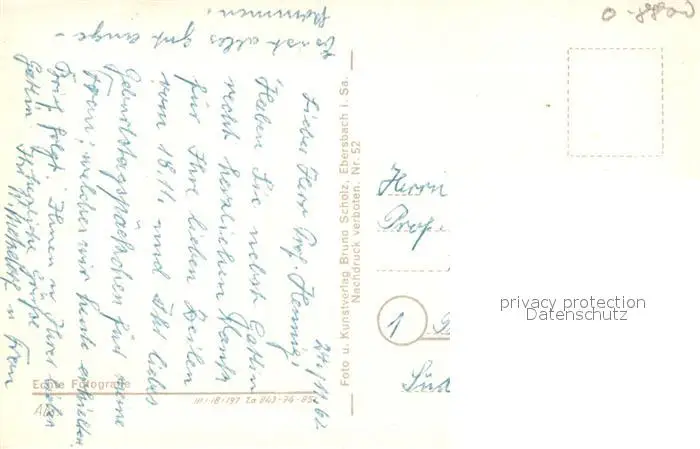 24./11.62.
Lieber Herr Prof. Hennig!
Haben Sie nebst Gattin
recht herzlichen Dank
für Ihre lieben Zeilen
vom 18.11. und das liebe
Geburtstagspäckchen für meine
Frau, welches wir heute erhielten.
Brief folgt. Ihnen u. Ihrer lieben
Gattin herzliche Grüße
Ihr u. Frau
Es ist alles gut ange-
kommen.
Foto u. Kunstverlag Bruno Scholz, Ebersbach i. Sa.
Nachdruck verboten. Nr. 52
Echte Fotografie
III-18-197 Za 843-74-85
Herrn
Prof.
1
Süd
privacy protection
Datenschutz